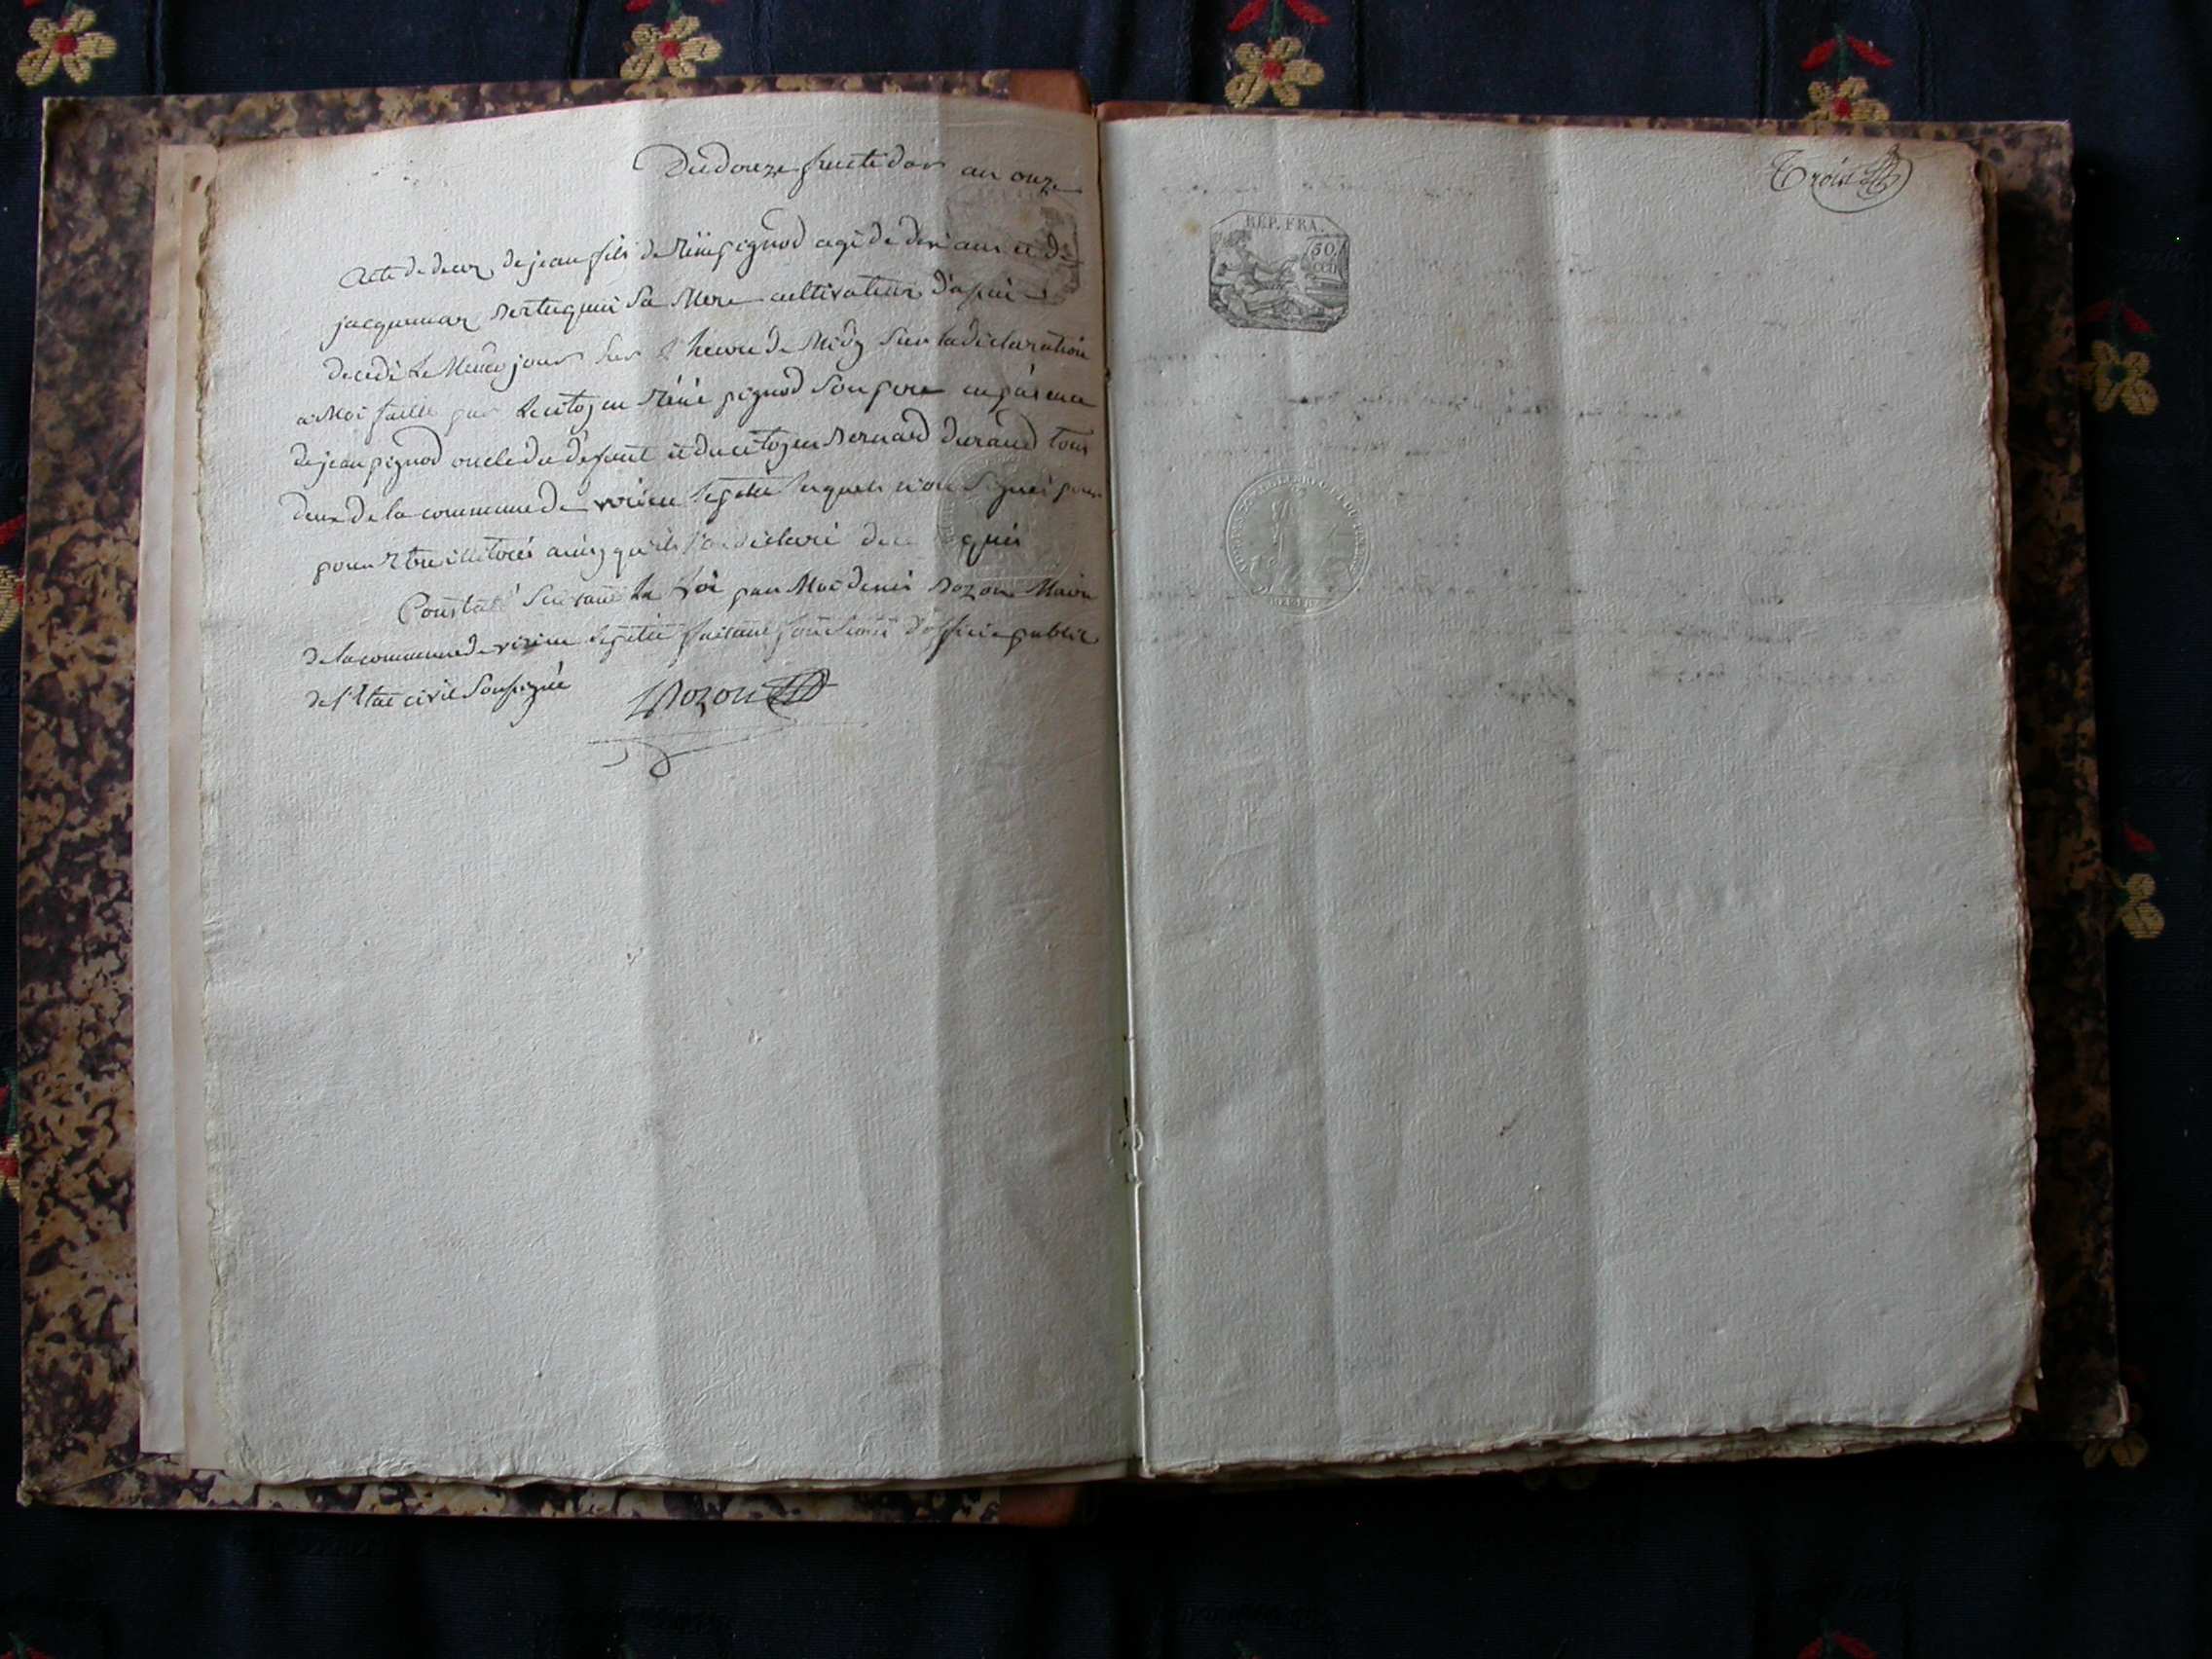 Du douze fructidor an onze
Acte de deces de jean fils de Réné pignod agé de ans et de
sa Mere cultivateur
decedé le Meme jour sur l'heure de Midy sur la déclaration
a Moi faitte par le citoyen Réné pignod son pere en présence
de jean pignod oncle du défunt et du citoyen Bernard durand tous
deux de la commune de virieu lepetit lequels n'on signés pour
pour Etre illitérés ainsy qu'ils l'on déclaré de ce quis
Constaté suivant la Loi par Moi denis Bozon Maire
de la commune de virieu lepetit faisant fonctions d'officie public
de l'Etat civil soussigné
Bozon
Trois
RÉP. FRA.
50
CEN